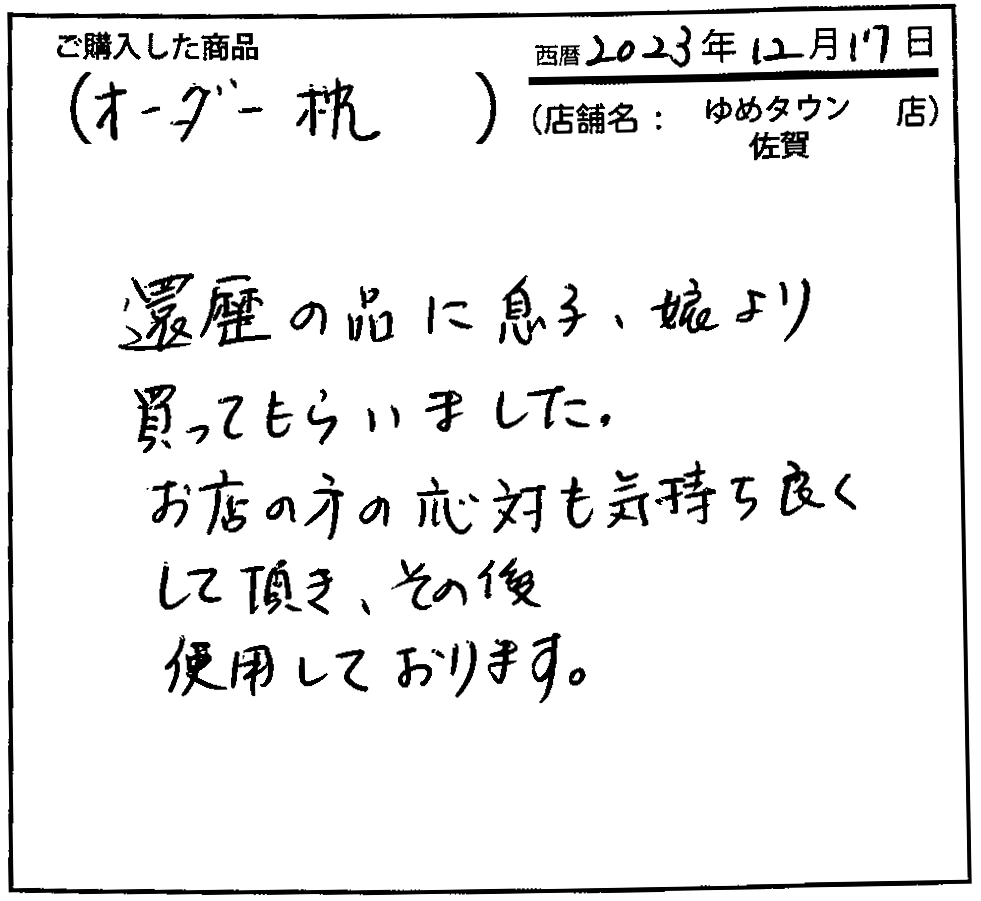 ご購入した商品
(オーダー枕)
西暦2023年12月17日
(店舗名： ゆめタウン 店)
佐賀
還暦の品に息子、娘より
買ってもらいました。
お店の方の応対も気持ち良く
して頂き、その後
使用しております。